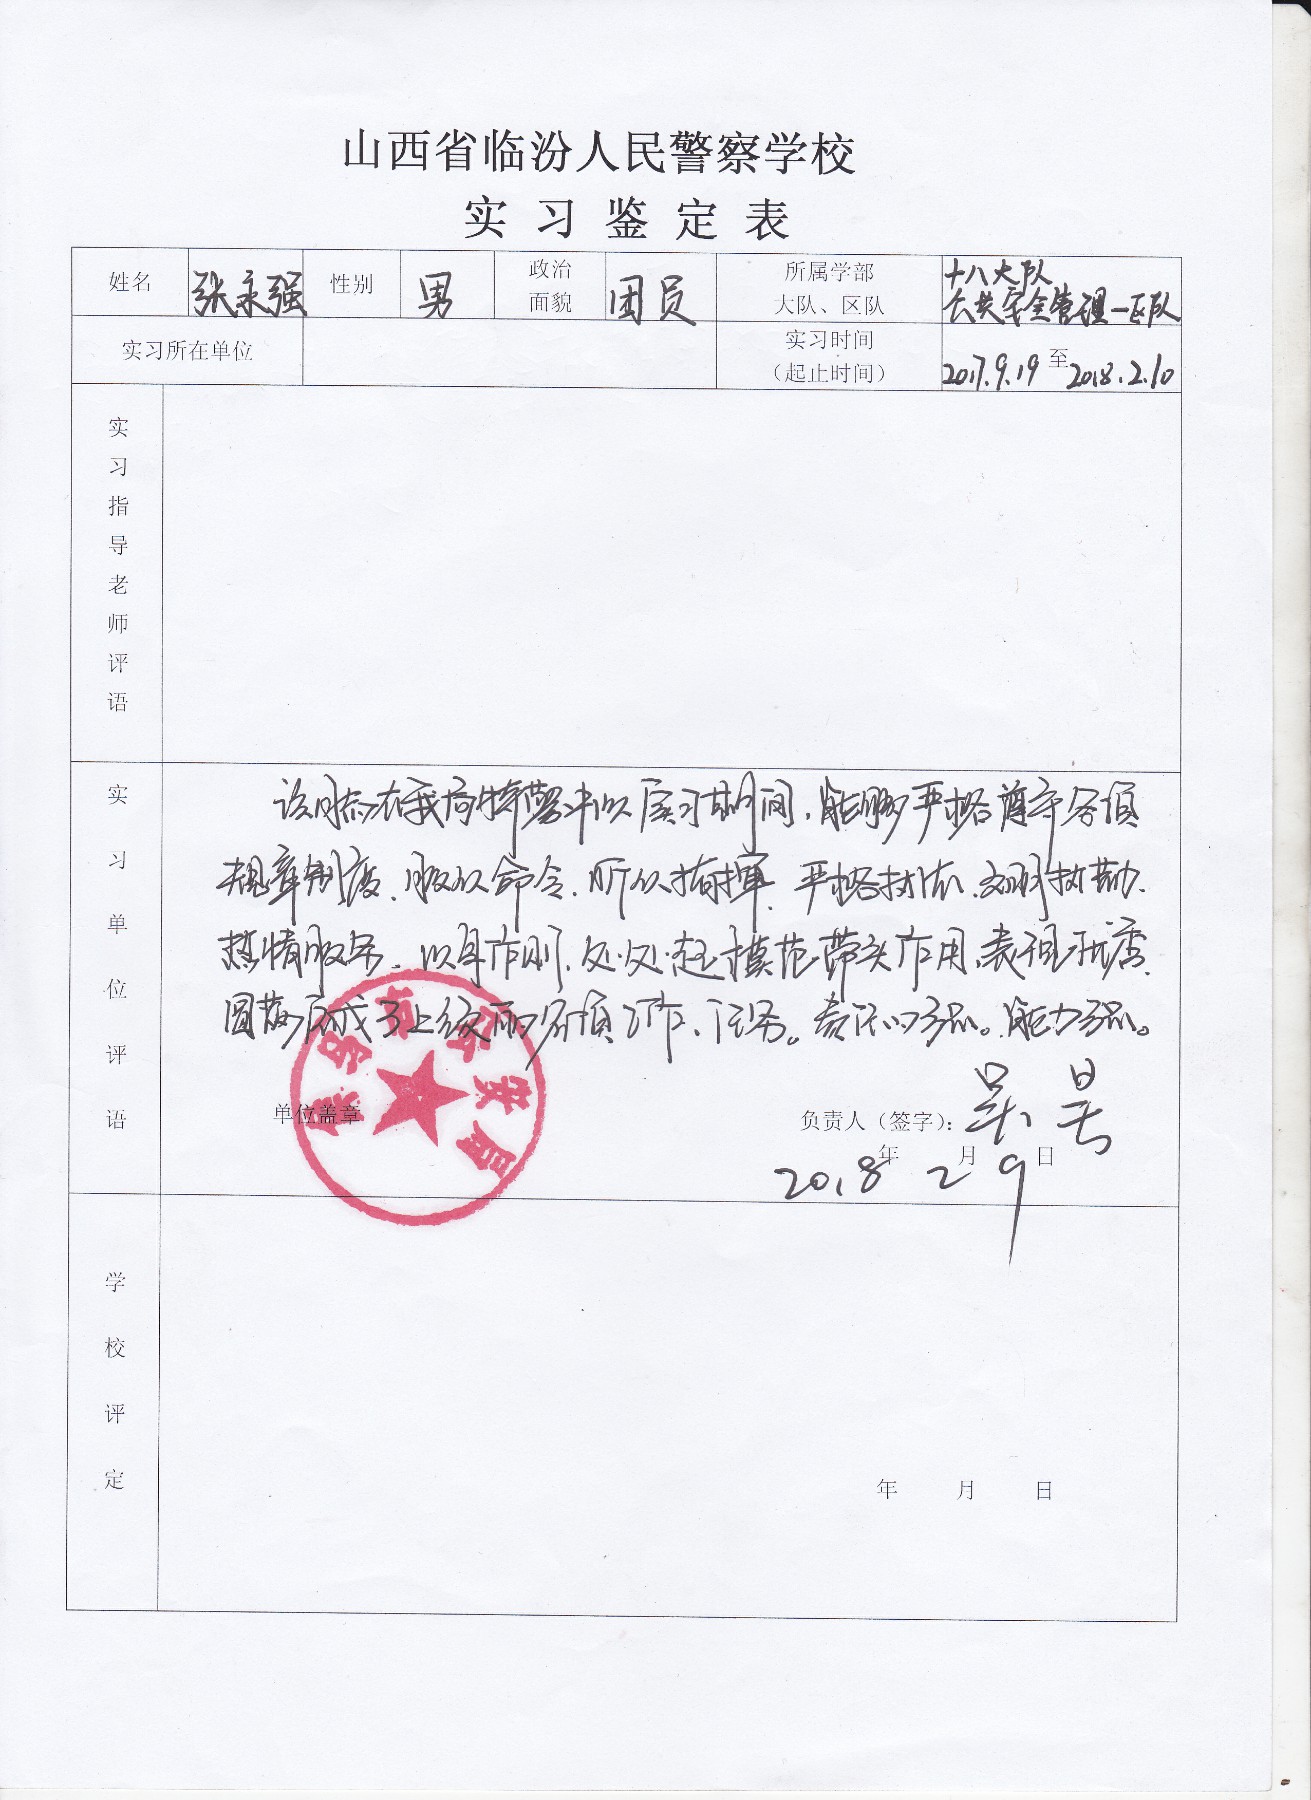 山西省临汾人民警察学校
实习鉴定表
姓名 张永强 性别 男 政治面貌 团员 所属学部大队、区队 十八大队
公共安全管理一区队
实习所在单位 实习时间（起止时间） 2017.9.19 至 2018.2.10
实习指导老师评语
实习单位评语
该同志在我局特警队实习期间，能够严格遵守各项
规章制度、服从命令、听从指挥、严格执法、文明执勤、
热情服务、以身作则、处处起模范带头作用，表现优秀、
圆满完成了上级的各项工作、任务。责任心强。能力强。
单位盖章
公安局
负责人（签字）：吴昊
2018年2月9日
学校评定
年 月 日